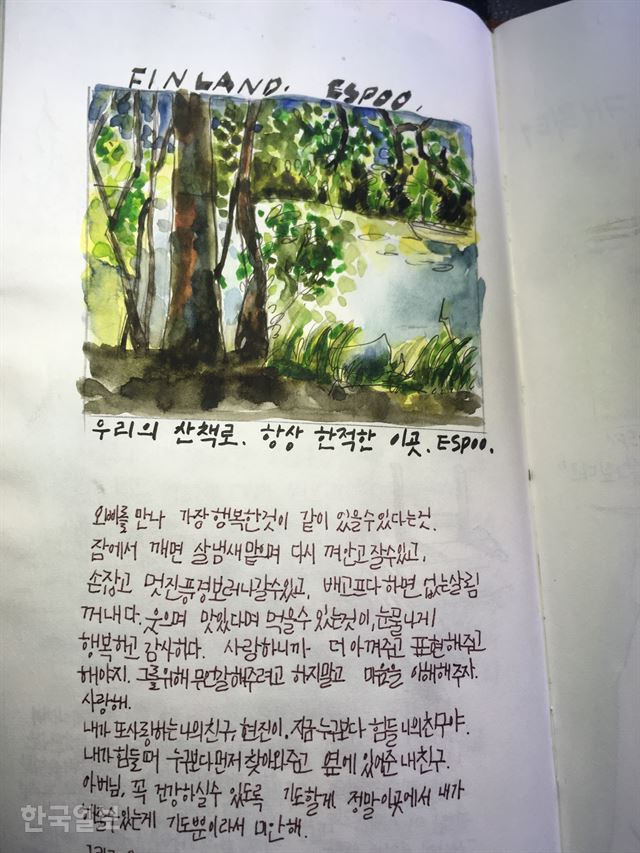 FINLAND. ESPOO.
우리의 산책로. 항상 한적한 이곳. ESPOO.
오빠를 만나 가장 행복한것이 같이 있을수있다는것.
잠에서 깨면 살냄새맡으며 다시 껴안고 잘수있고,
손잡고 멋진풍경보러나갈수있고, 배고프다하면 없는살림
꺼내다. 웃으며 맛있다며 먹을수 있는것이, 눈물나게
행복하고 감사하다. 사랑하니까 더 아껴주고 표현해주고
해야지. 그를위해 무언갈해주려고 하지말고 마음을 이해해주자.
사랑해.
내가 또사랑하는 나의친구, 현진이. 지금 누구보다 힘들 나의친구야.
내가 힘들때 누구보다먼저 찾아와주고 옆에 있어준 내친구.
아버님, 꼭 건강하실수 있도록 기도할게. 정말이곳에서 내가
해줄수있는게 기도뿐이라서 미안해.
한국일보